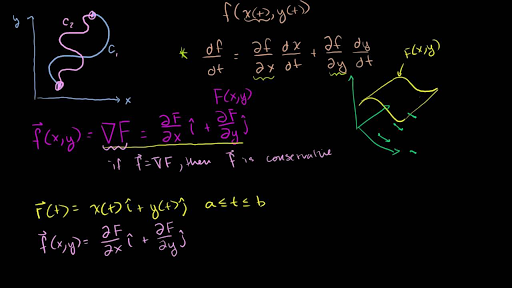 f(x(t), y(t))
y
C₂
C₁
x
* df/dt = ∂f/∂x dx/dt + ∂f/∂y dy/dt
F(x,y)
F(x,y)
f⃗(x,y) = ∇F = ∂F/∂x î + ∂F/∂y ĵ
if f⃗=∇F, then f⃗ is conservative
r⃗(t) = x(t) î + y(t) ĵ a≤t≤b
f⃗(x,y) = ∂F/∂x î + ∂F/∂y ĵ